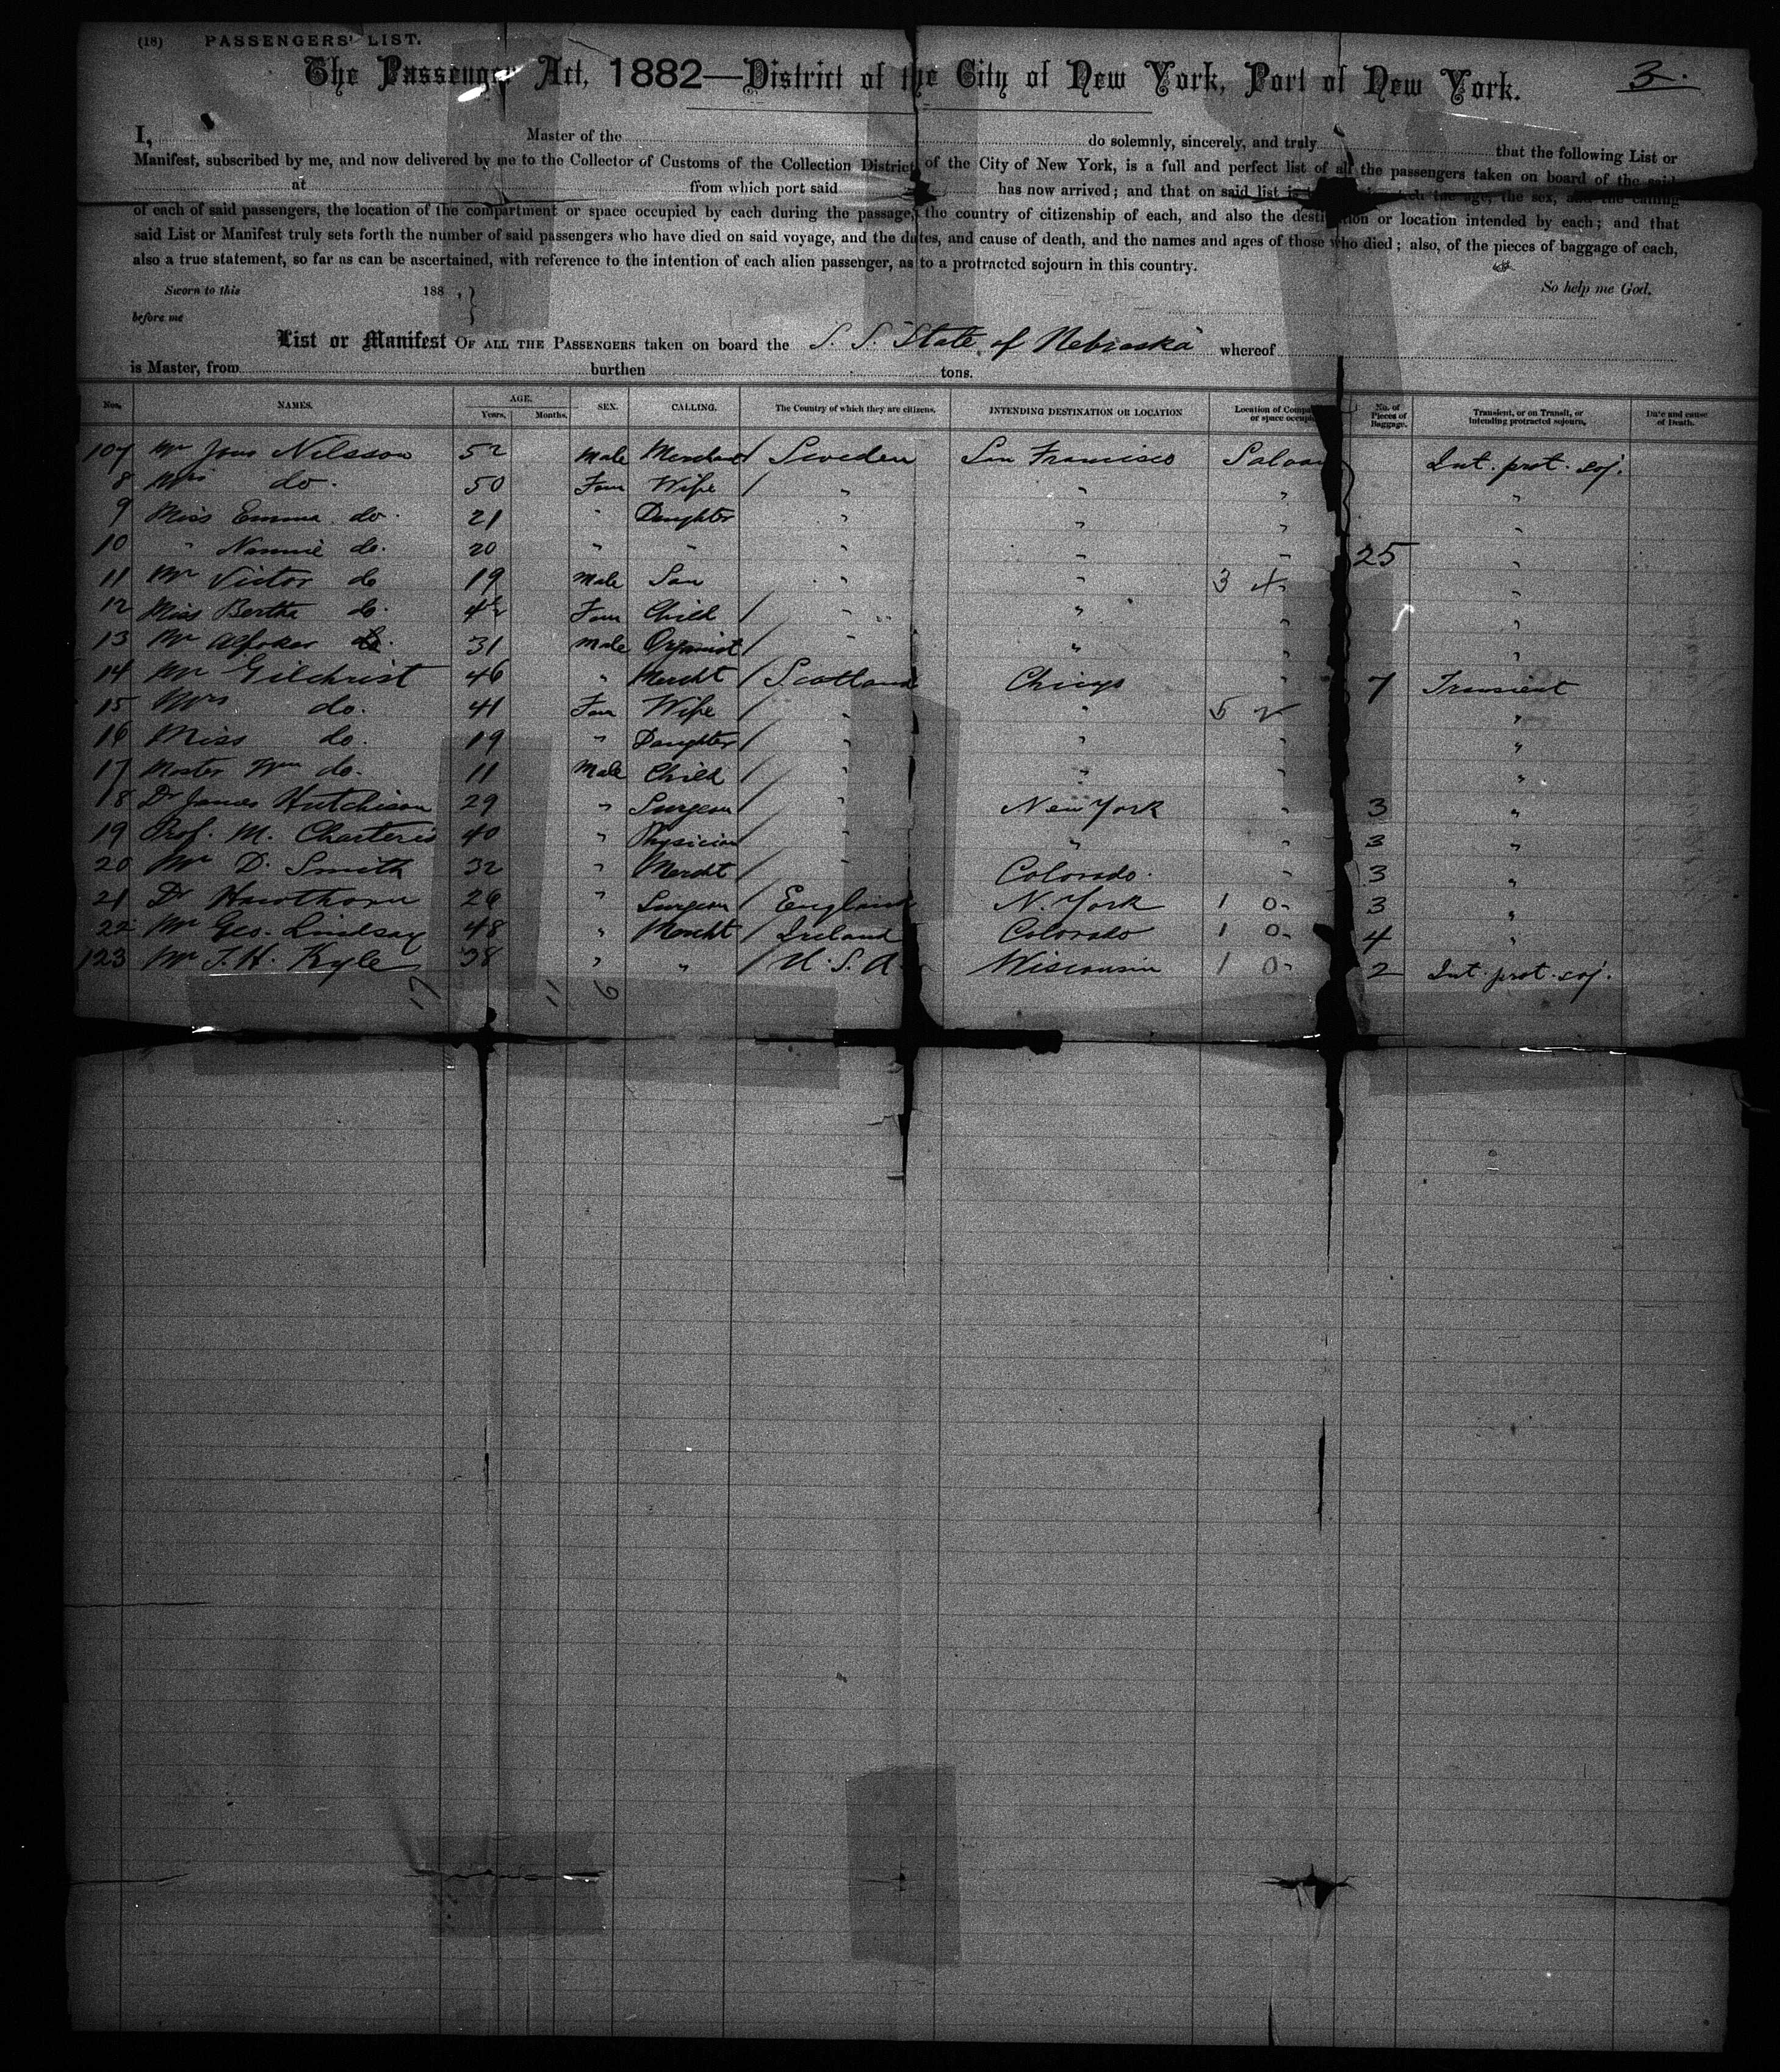 (18) PASSENGERS' LIST.
The Passenger Act, 1882—District of the City of New York, Port of New York. 3.
I, Master of the do solemnly, sincerely, and truly that the following List or
Manifest, subscribed by me, and now delivered by me to the Collector of Customs of the Collection District of the City of New York, is a full and perfect list of all the passengers taken on board of the said
at from which port said has now arrived; and that on said list is the age, the sex, and the calling
of each of said passengers, the location of the compartment or space occupied by each during the passage, the country of citizenship of each, and also the destination or location intended by each; and that
said List or Manifest truly sets forth the number of said passengers who have died on said voyage, and the dates, and cause of death, and the names and ages of those who died; also, of the pieces of baggage of each,
also a true statement, so far as can be ascertained, with reference to the intention of each alien passenger, as to a protracted sojourn in this country.
Sworn to this 188 , } So help me God.
before me
List or Manifest OF ALL THE PASSENGERS taken on board the S. S. "State of Nebraska" whereof
is Master, from burthen tons.
Nos. NAMES. AGE. Years. Months. SEX. CALLING. The Country of which they are citizens. INTENDING DESTINATION OR LOCATION Location of Comp or space occupi No. of Pieces of Baggage. Transient, or on Transit, or intending protracted sojourn. Date and cause of Death.
107 Mr Jons Nilsson 52 Male Merchant / Sweden San Francisco Saloon Int. prot. soj.
8 Mrs do. 50 Fem Wife / " " " "
9 Miss Emma do. 21 " Daughter " " " "
10 " Nannie do. 20 " " " " " 25 "
11 Mr Victor do 19 Male Son " " 3 "
12 Miss Bertha do. Fem Child / " " " "
13 Mr do. 31 Male Organist / " " " "
14 Mr Gilchrist 46 " Mercht / Scotland Chicago " 7 Transient
15 Mrs do. 41 Fem Wife / " " 5 "
16 Miss do. 19 " Daughter / " " " "
17 Master Wm do. 11 Male Child / " " " "
18 Dr James Hutchison 29 " Surgeon / " New York " 3 "
19 Prof. M. Charteris 40 " Physician / " " " 3 "
20 Mr D. Smith 32 " Mercht / " Colorado. " 3 "
21 Dr Hawthorn 26 " Surgeon / England N. York 1 0 3 "
22 Mr Geo. Lindsay 48 " Mercht / Ireland Colorado 1 0 4 "
123 Mr J. H. Kyle 38 " " / U. S. A. Wisconsin 1 0 2 Int. prot. soj.
17 11 6